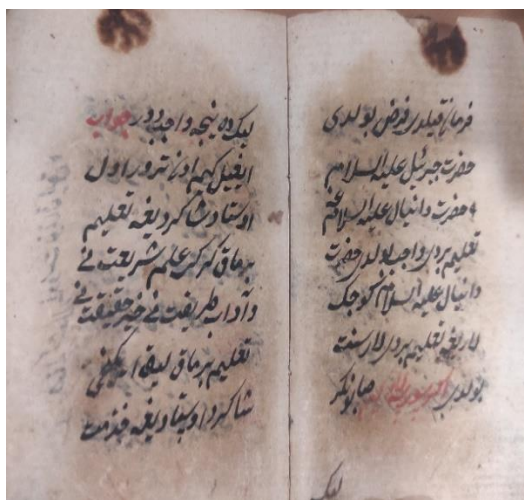 فرمان قیلدی فرض بولدی
حضرت جبرئیل علیه السلام
حضرت دانیال علیه السلامغه
تعلیم بردی واجب بولدی حضرت
دانیال علیه السلام کوجک
لاریغه تعلیم بردی لار سنت
بولدی اکر
نیجه واجبدور جواب
ایغیل کیم اون تورور اول
اوستاد شاکردیغه تعلیم
برماق کرک علم شریعت نی
و آداب طریقت نی حقیقت نی
تعلیم برماق
شاکرد اوستادیغه خذمت